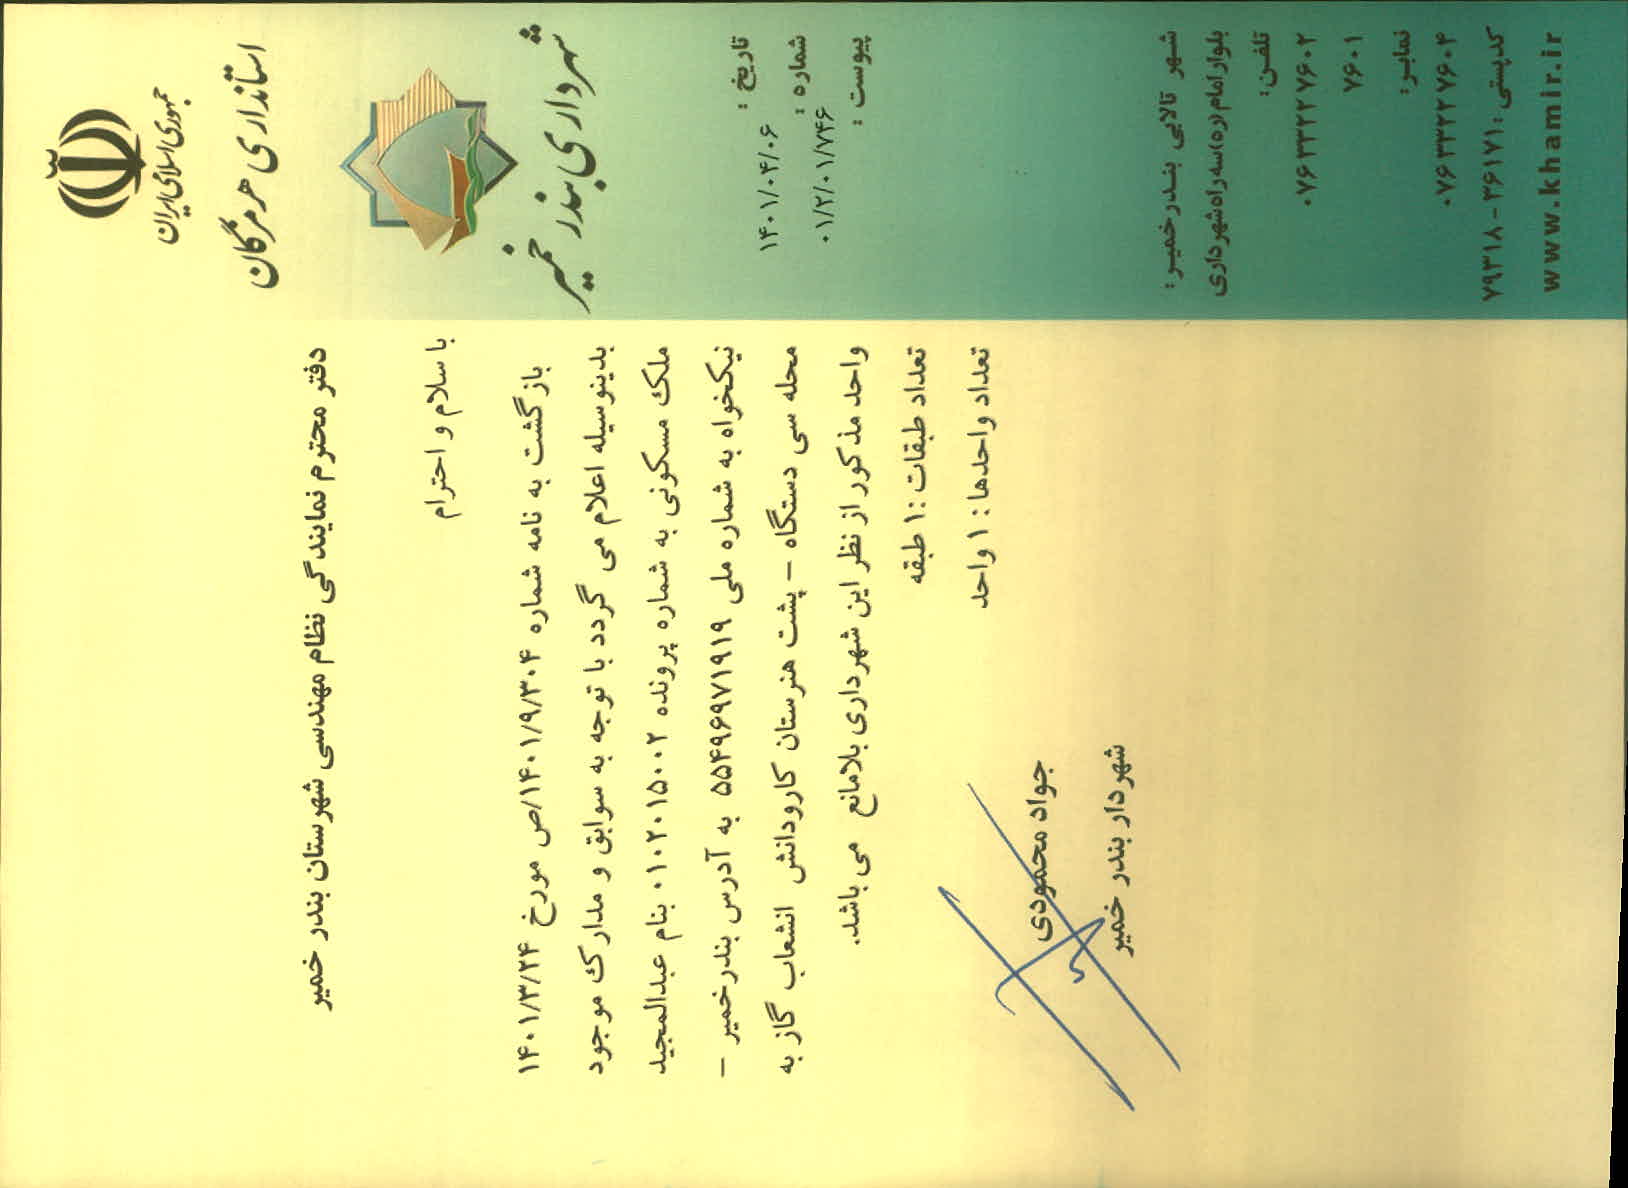 جمهوری اسلامی ایران
استانداری هرمزگان
شهرداری بندر خمیر
تاریخ :
۱۴۰۱/۰۴/۰۶
شماره :
۰۱/۲/۰۱/۷۴۶
پیوست :
شهر تالابی بندرخمیر :
بلوار امام(ره)سه راه شهرداری
تلفن:
۰۷۶۳۳۲۲۷۶۰۲
۷۶۰۱
نمابر:
۰۷۶۳۳۲۲۷۶۰۴
کدپستی :۳۶۱۷۱-۷۹۳۱۸
www.khamir.ir
دفتر محترم نمایندگی نظام مهندسی شهرستان بندر خمیر
با سلام و احترام
بازگشت به نامه شماره ۱۴۰۱/۹/۳۰۴/ص مورخ ۱۴۰۱/۳/۲۴
بدینوسیله اعلام می گردد با توجه به سوابق و مدارک موجود
ملک مسکونی به شماره پرونده ۰۱۰۲۰۱۵۰۰۲ بنام عبدالمجید
نیکخواه به شماره ملی ۵۵۴۹۶۹۷۱۹۱۹ به آدرس بندرخمیر -
محله سی دستگاه - پشت هنرستان کارودانش انشعاب گاز به
واحد مذکور از نظر این شهرداری بلامانع می باشد.
تعداد طبقات :۱ طبقه
تعداد واحدها : ۱ واحد
جواد محمودی
شهردار بندر خمیر